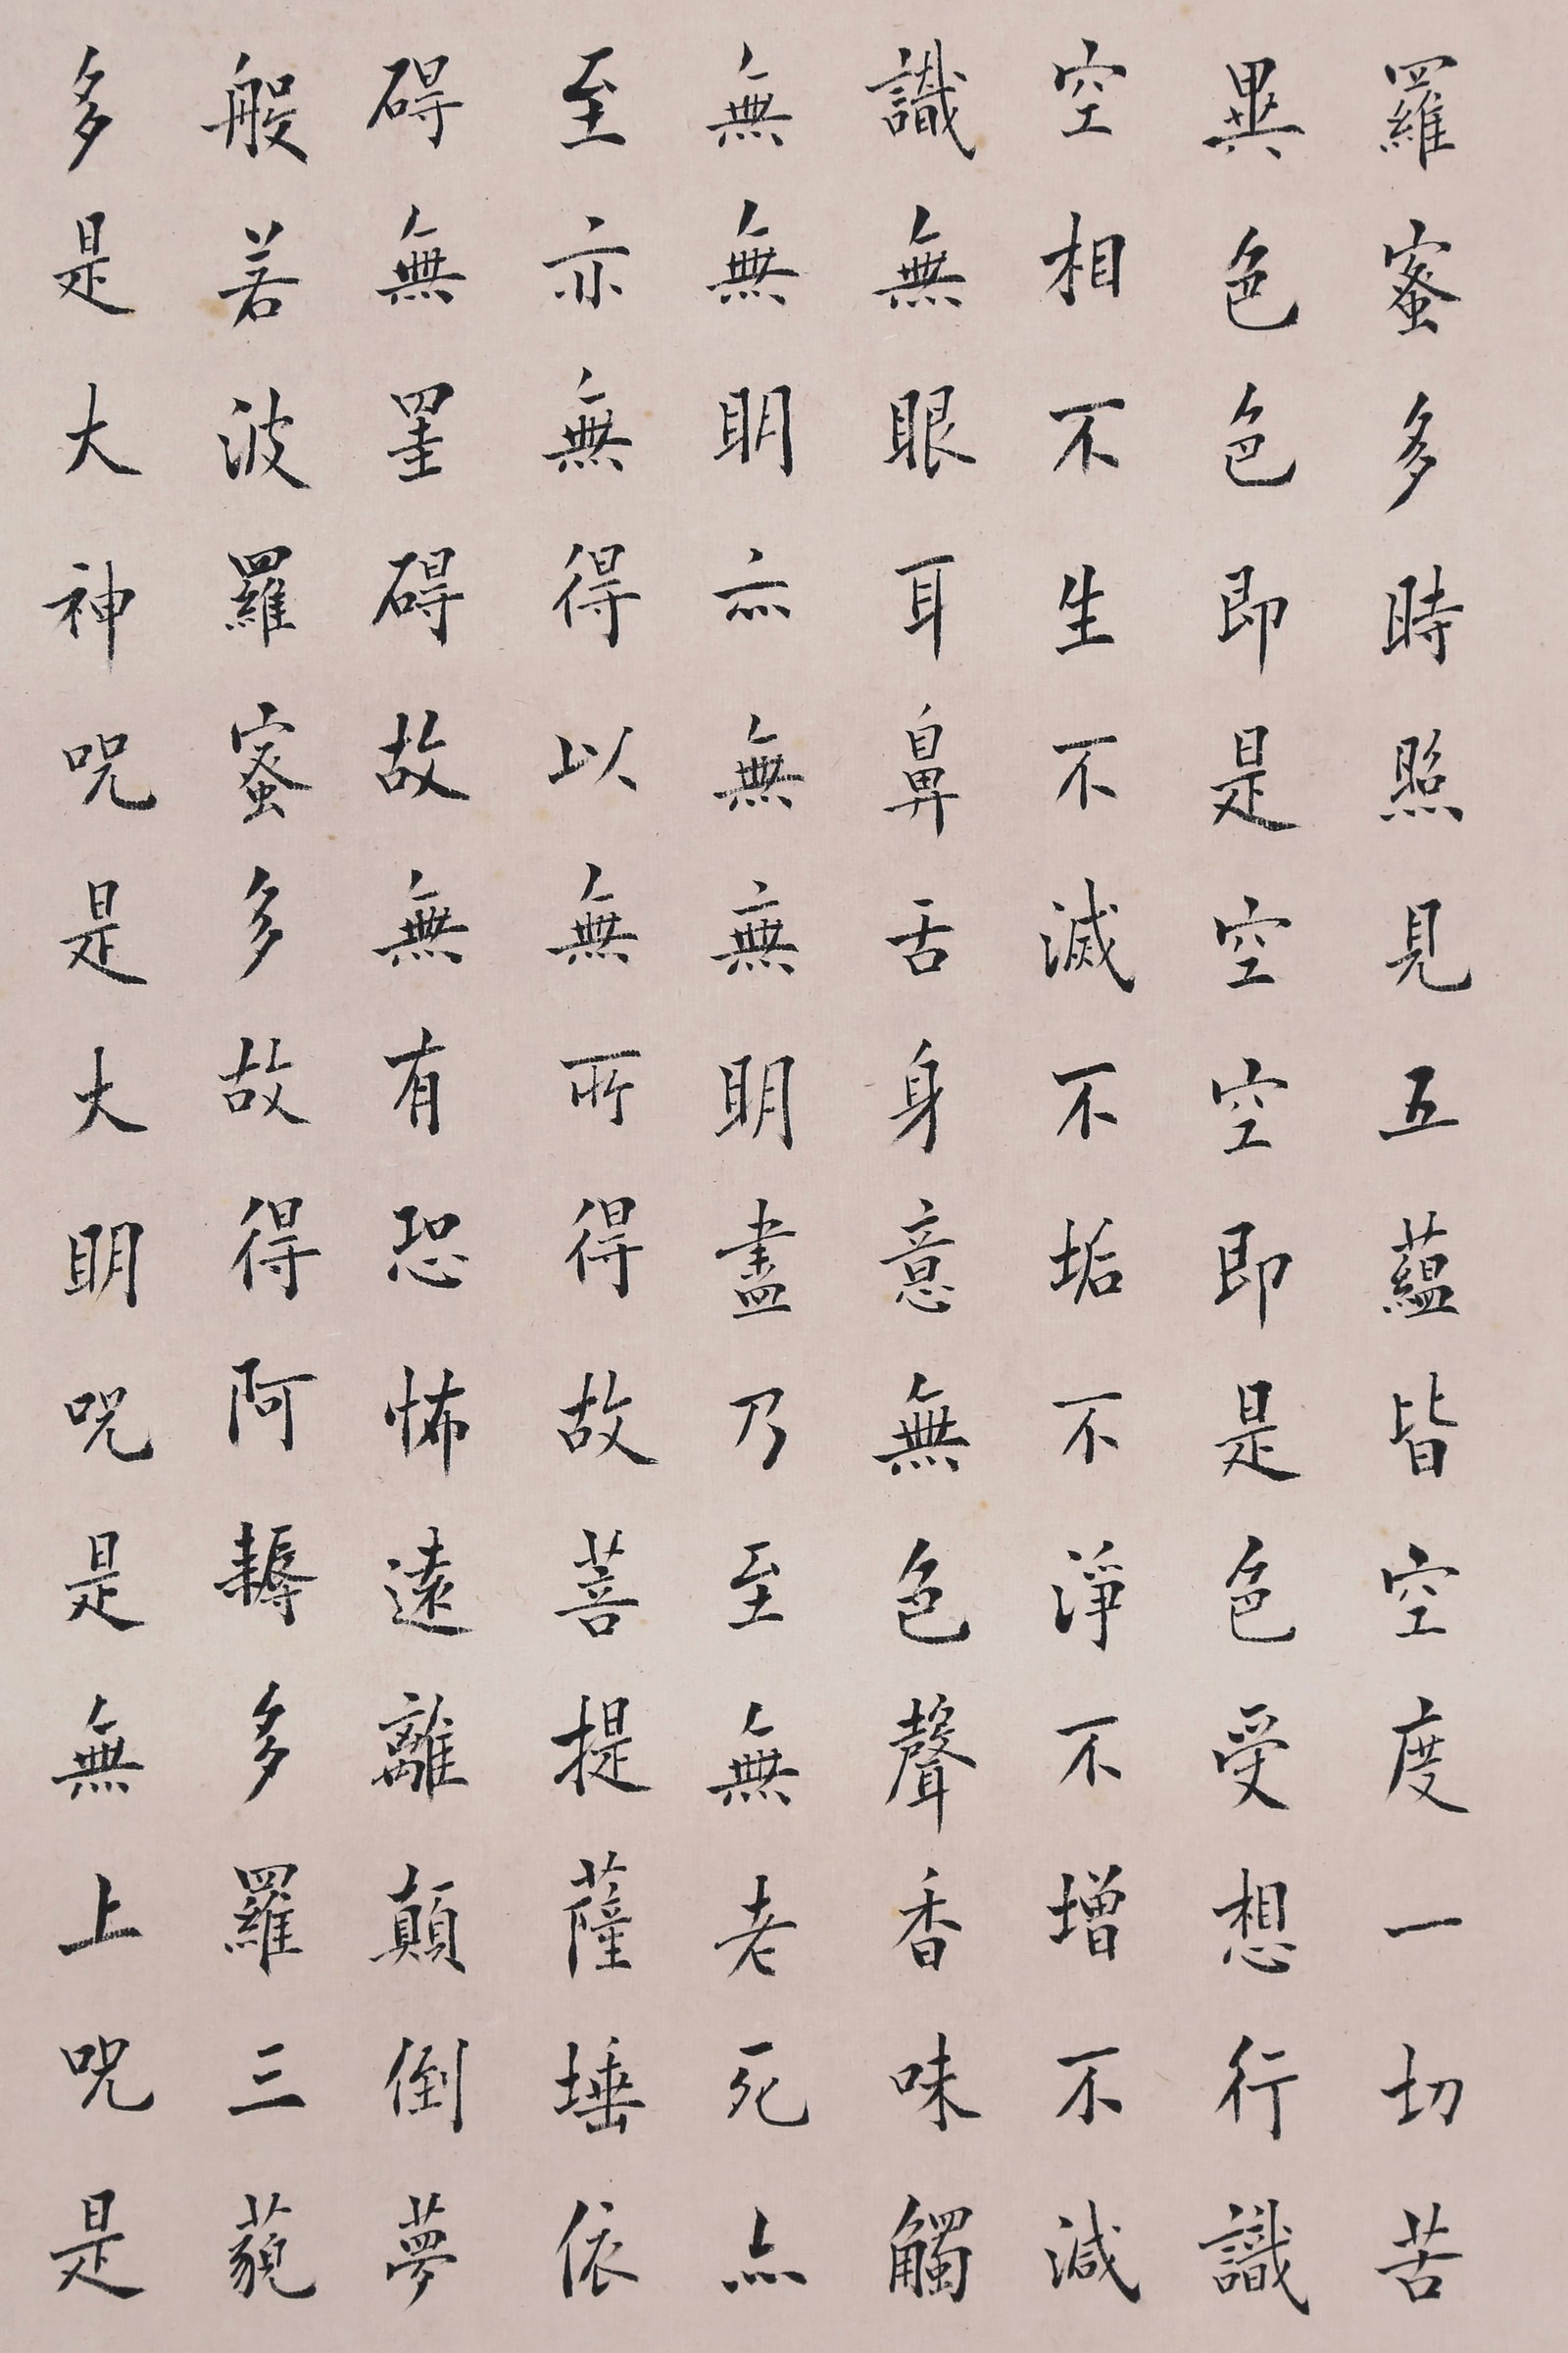 羅蜜多時照見五蘊皆空度一切苦
異色色即是空空即是色受想行識
空相不生不滅不垢不淨不增不減
識無眼耳鼻舌身意無色聲香味觸
無無明亦無無明盡乃至無老死亦
至亦無得以無所得故菩提薩埵依
碍無罣碍故無有恐怖遠離顛倒夢
般若波羅蜜多故得阿耨多羅三藐
多是大神呪是大明呪是無上呪是